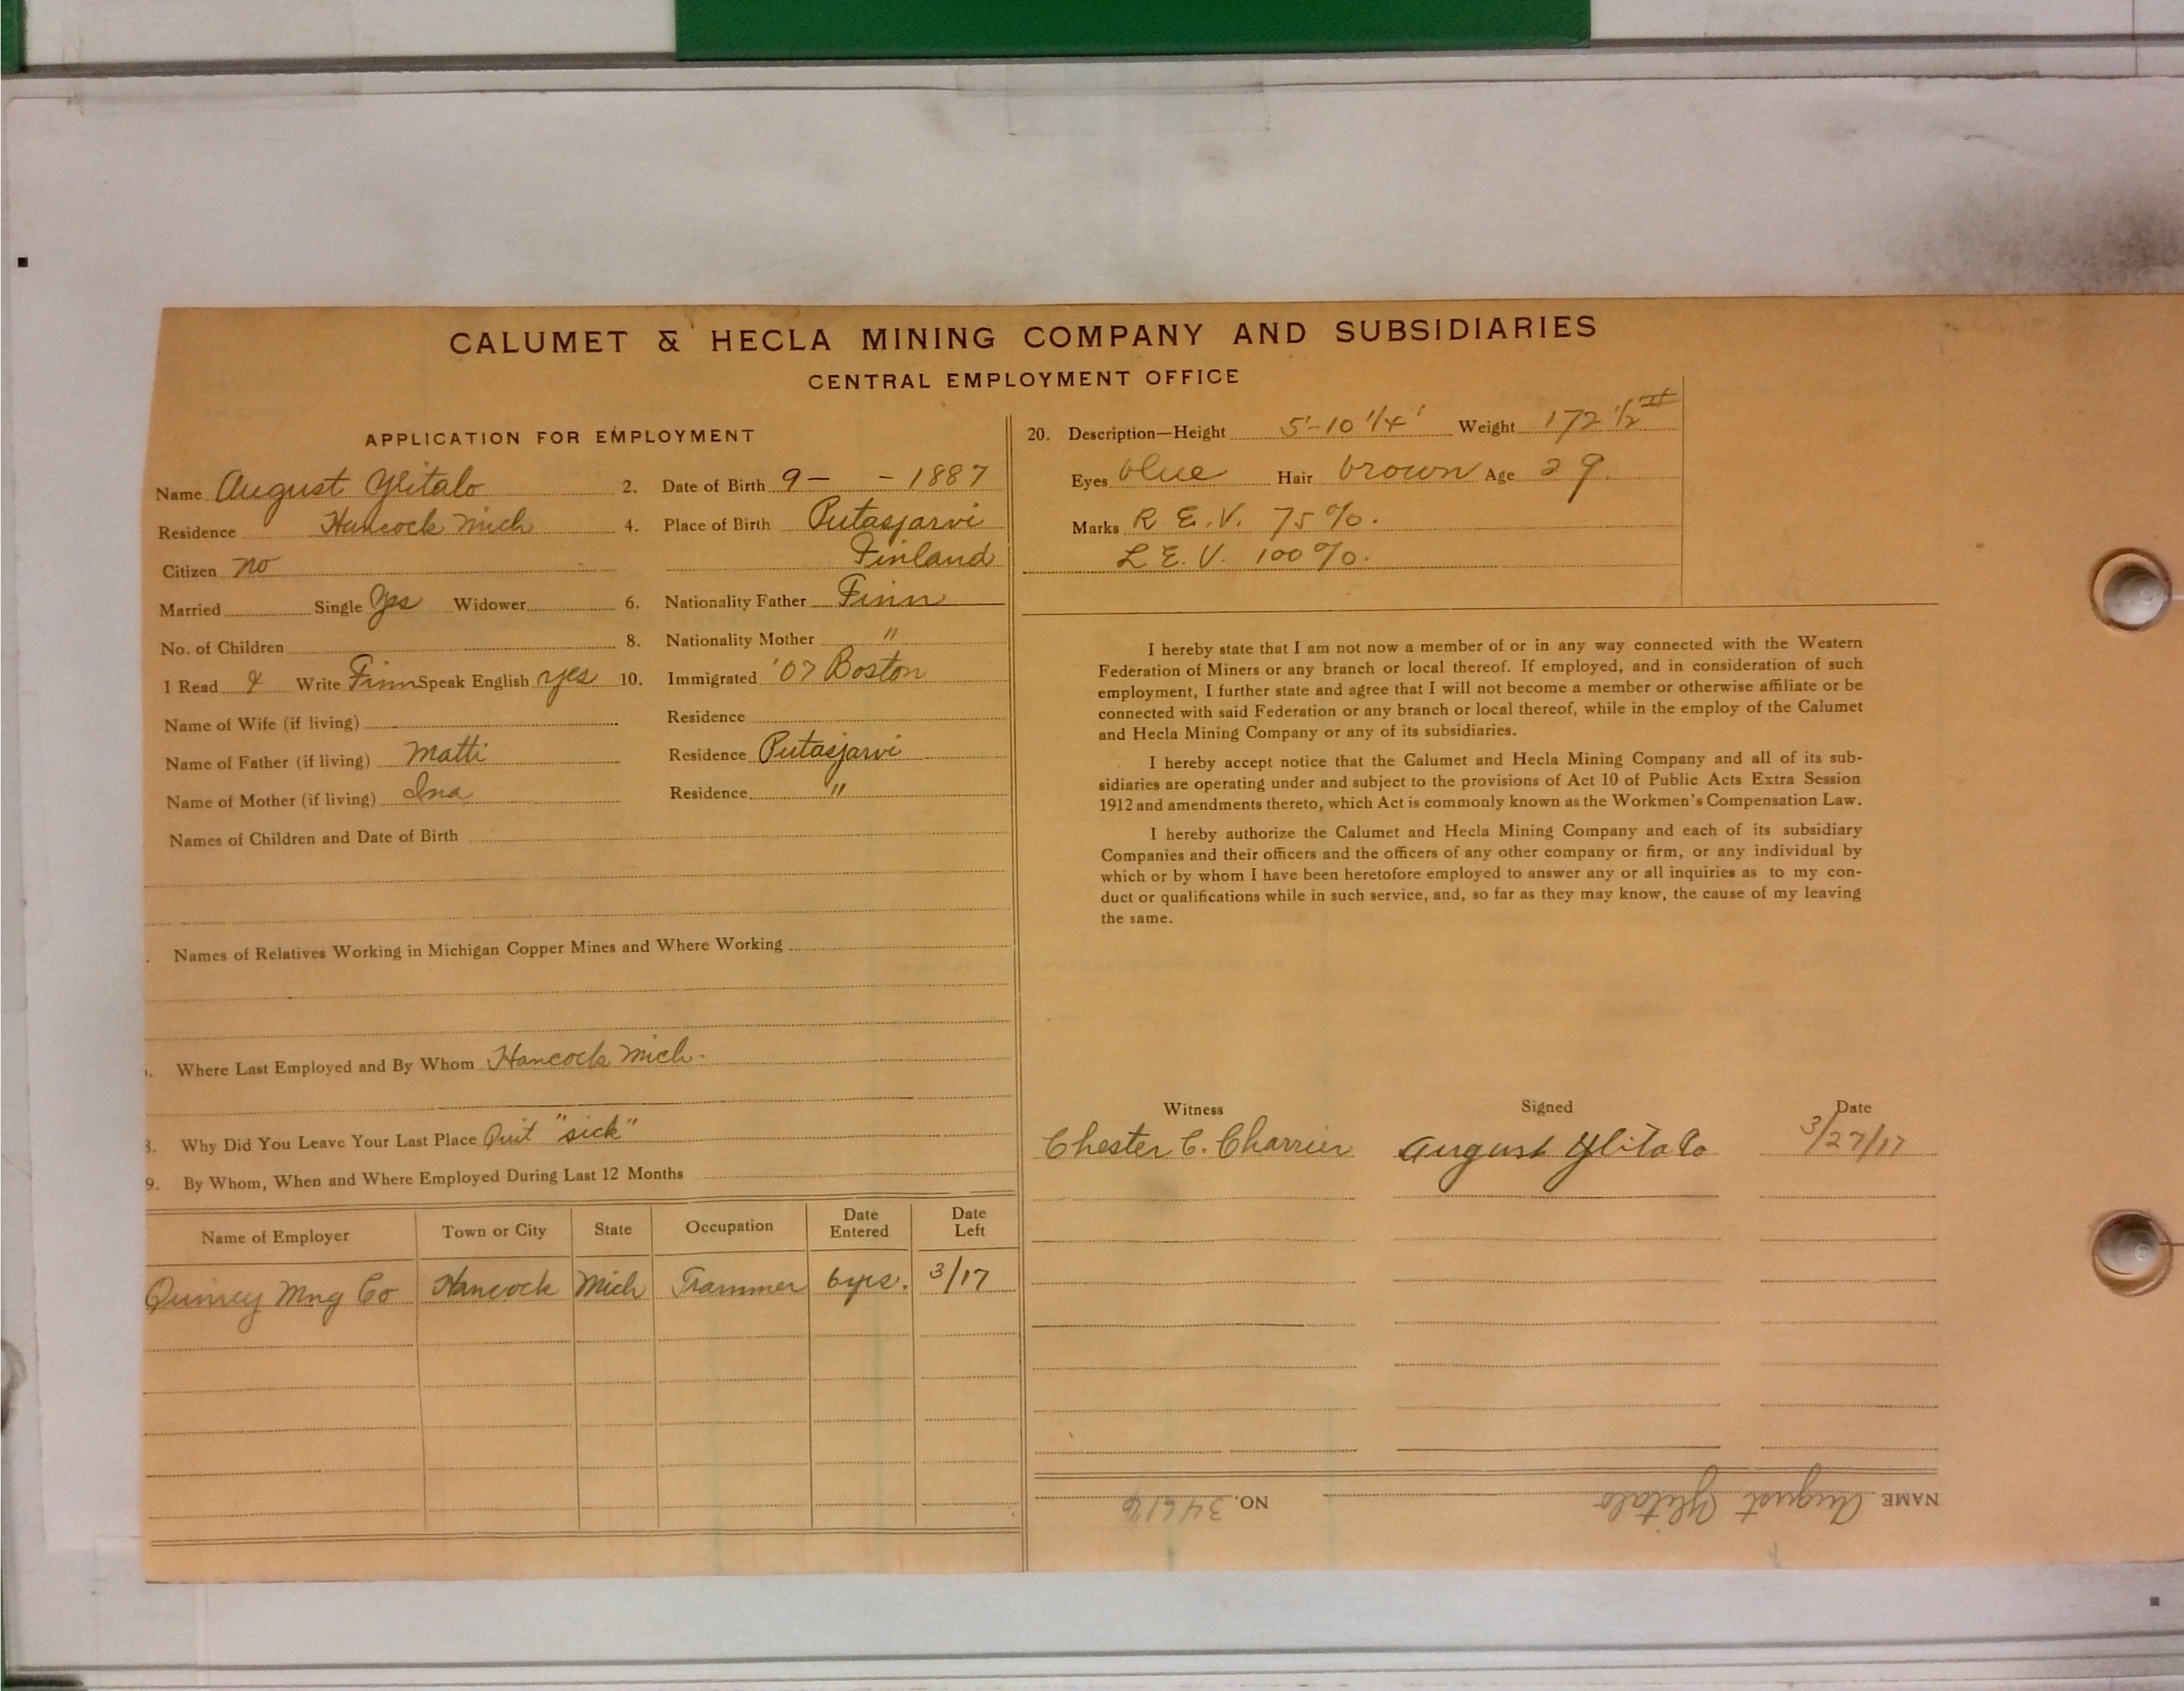 CALUMET & HECLA MINING COMPANY AND SUBSIDIARIES
CENTRAL EMPLOYMENT OFFICE
APPLICATION FOR EMPLOYMENT
Name August Ylitalo 2. Date of Birth 9- -1887
Residence Hancock Mich 4. Place of Birth Putasjarvi
Citizen no Finland
Married Single Yes Widower 6. Nationality Father Finn
No. of Children 8. Nationality Mother "
I Read & Write Finn Speak English yes 10. Immigrated '07 Boston
Name of Wife (if living) Residence
Name of Father (if living) Matti Residence Putasjarvi
Name of Mother (if living) Ina Residence "
Names of Children and Date of Birth
Names of Relatives Working in Michigan Copper Mines and Where Working
Where Last Employed and By Whom Hancock Mich.
Why Did You Leave Your Last Place Quit "sick"
9. By Whom, When and Where Employed During Last 12 Months
Name of Employer Town or City State Occupation Date Entered Date Left
Quincy Mng Co Hancock Mich Trammer 6 yrs. 3/17
20. Description—Height 5'-10 1/4' Weight 172 1/2 #
Eyes blue Hair brown Age 29.
Marks R. E. V. 75%.
L. E. V. 100%.
I hereby state that I am not now a member of or in any way connected with the Western
Federation of Miners or any branch or local thereof. If employed, and in consideration of such
employment, I further state and agree that I will not become a member or otherwise affiliate or be
connected with said Federation or any branch or local thereof, while in the employ of the Calumet
and Hecla Mining Company or any of its subsidiaries.
I hereby accept notice that the Calumet and Hecla Mining Company and all of its sub-
sidiaries are operating under and subject to the provisions of Act 10 of Public Acts Extra Session
1912 and amendments thereto, which Act is commonly known as the Workmen's Compensation Law.
I hereby authorize the Calumet and Hecla Mining Company and each of its subsidiary
Companies and their officers and the officers of any other company or firm, or any individual by
which or by whom I have been heretofore employed to answer any or all inquiries as to my con-
duct or qualifications while in such service, and, so far as they may know, the cause of my leaving
the same.
Witness Signed Date
Chester C. Charrier August Ylitalo 3/27/17
NAME August Ylitalo NO. 34616